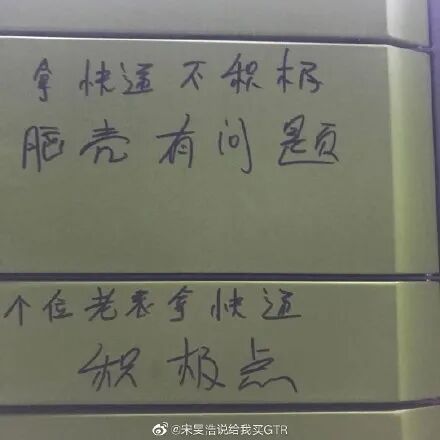 拿快递不积极
脑壳有问题
个位老表拿快递
积极点
@宋雯浩说给我买GTR